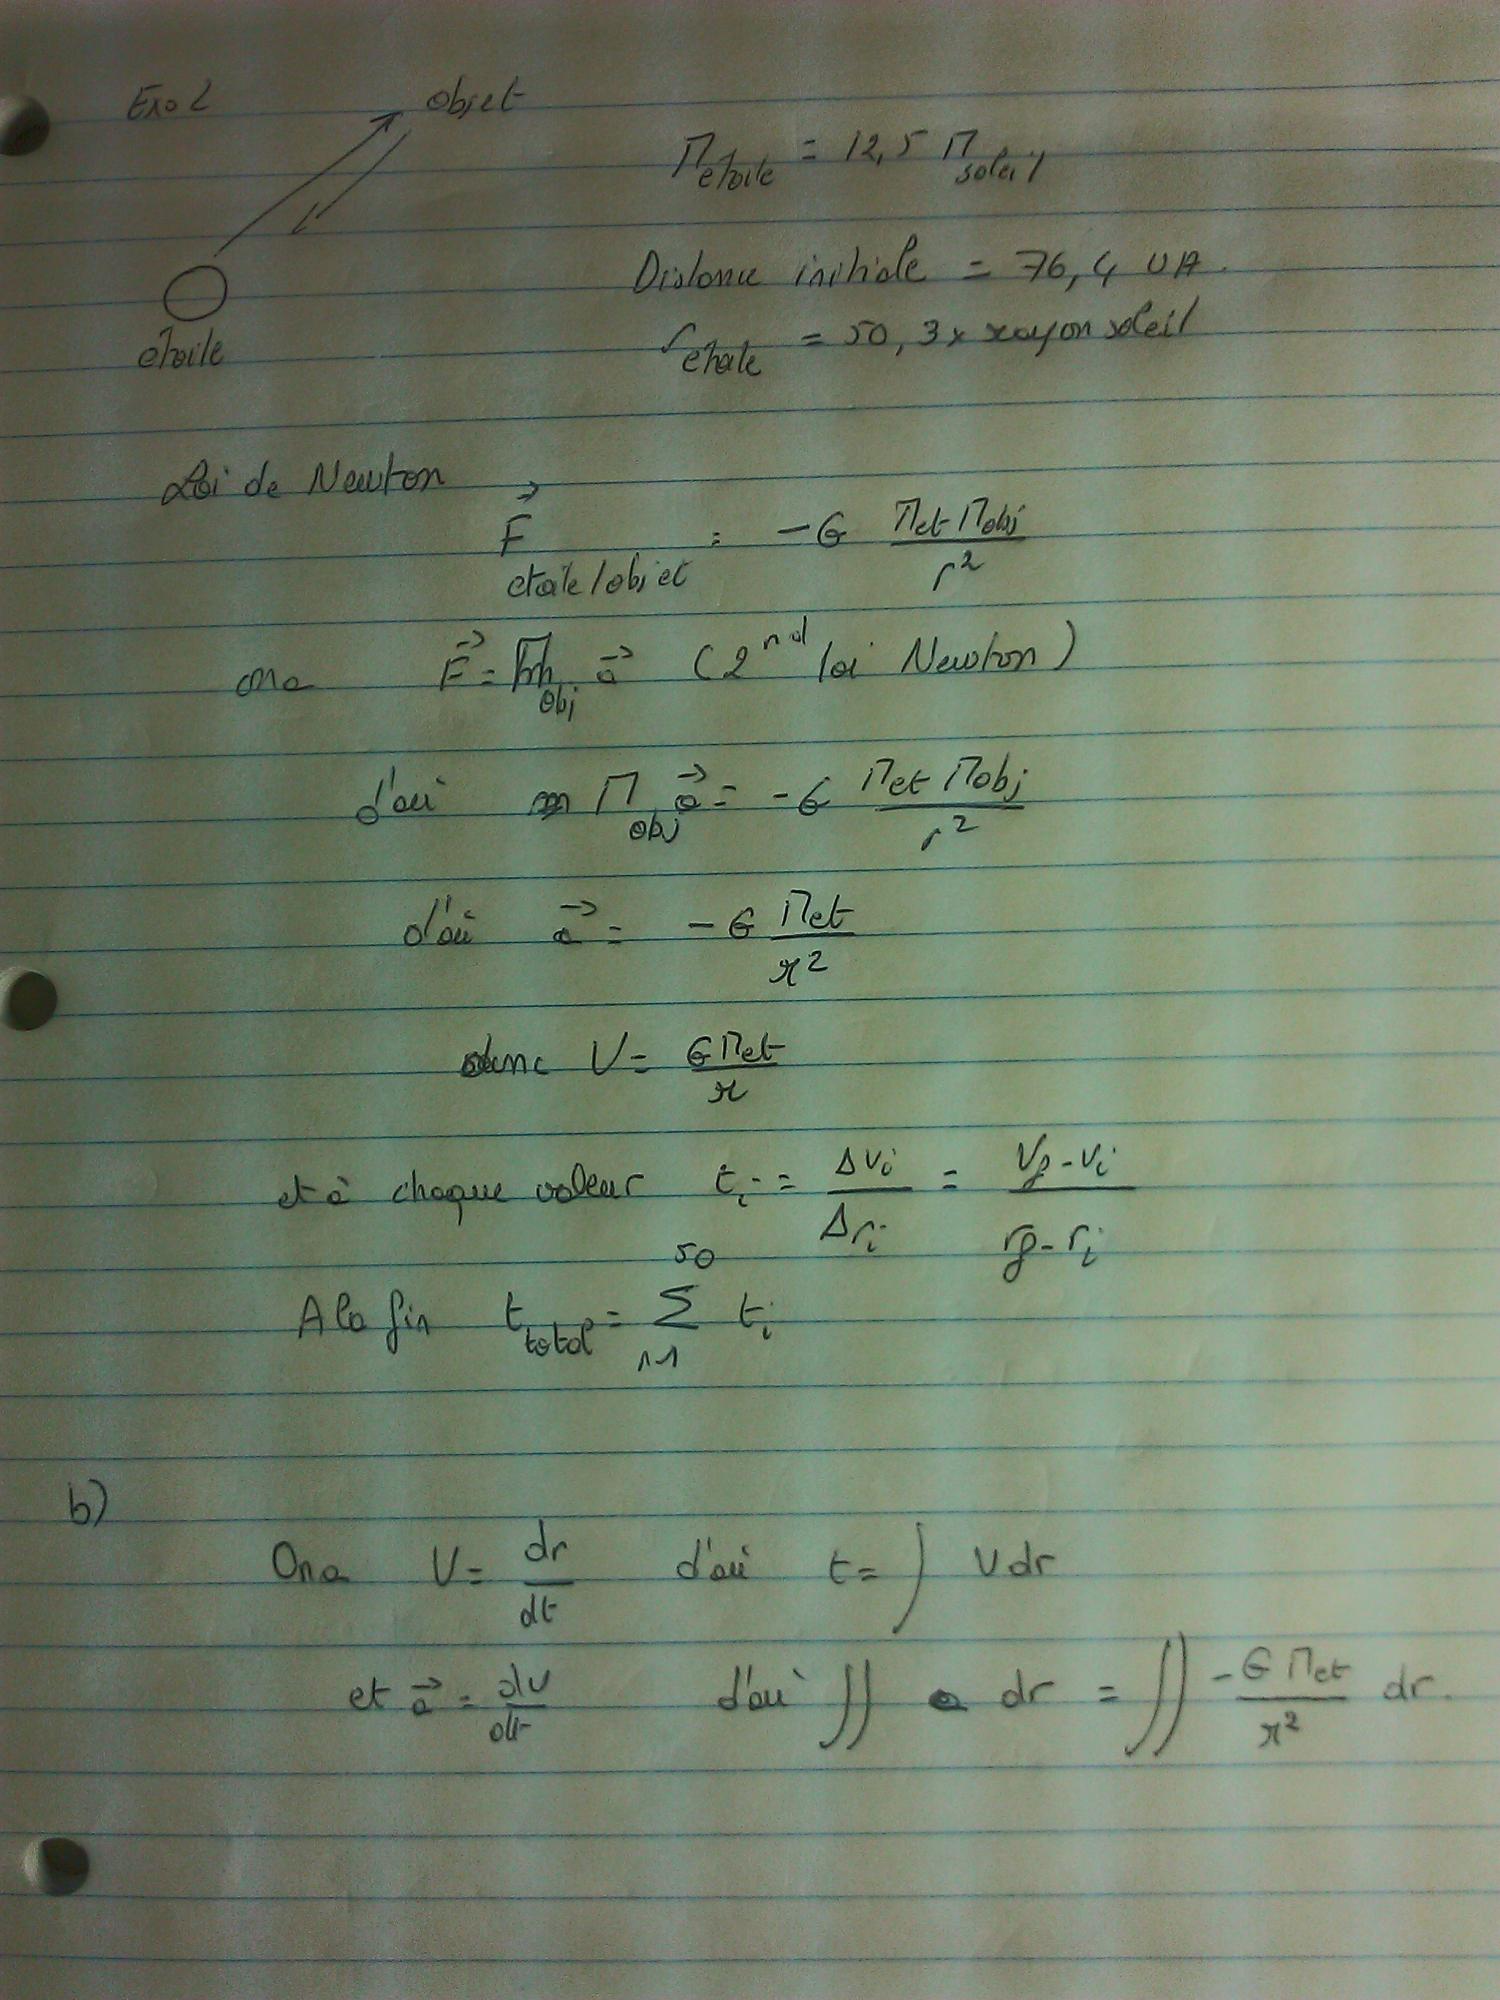 Exo 2
objet
Metoile = 12,5 Msoleil
Distance initiale = 76,4 UA.
étoile
retoile = 50,3 x rayon soleil
Loi de Newton
F⃗ etoile/objet = -G Met Mobj / r²
ona F⃗ = Mobj a⃗ (2nd loi Newton)
d'où Mobj a⃗ = -G Met Mobj / r²
d'où a⃗ = -G Met / r²
donc V = G Met / r
et à chaque valeur ti = ΔVi / Δri = Vf - Vi / rf - ri
A la fin ttotal = 50 Σ ti
b)
Ona V = dr/dt d'où t = ∫ V dr
et a⃗ = dV/dt d'où ∬ a dr = ∬ -G Met / r² dr.